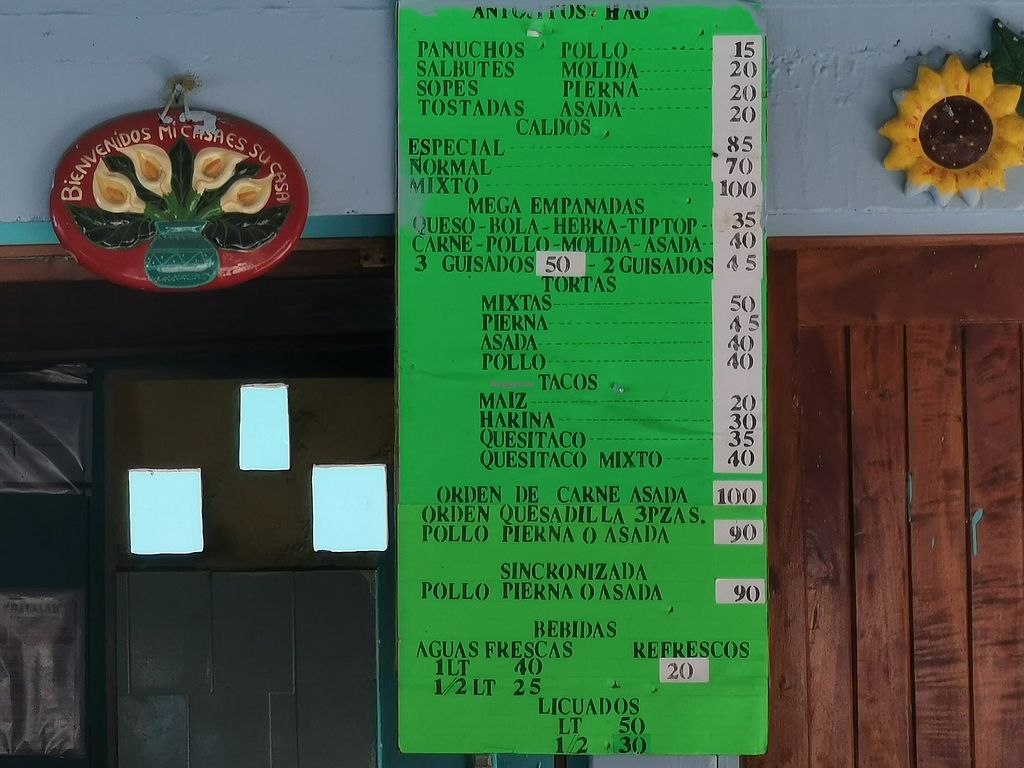 BIENVENIDOS MI CASA ES SU CASA
ANTOJITOS
PANUCHOS POLLO 15
SALBUTES MOLIDA 20
SOPES PIERNA 20
TOSTADAS ASADA 20
CALDOS
ESPECIAL 85
NORMAL 70
MIXTO 100
MEGA EMPANADAS
QUESO-BOLA-HEBRA-TIPTOP 35
CARNE-POLLO-MOLIDA-ASADA 40
3 GUISADOS 50 - 2 GUISADOS 45
TORTAS
MIXTAS 50
PIERNA 45
ASADA 40
POLLO 40
TACOS
MAIZ 20
HARINA 30
QUESITACO 35
QUESITACO MIXTO 40
ORDEN DE CARNE ASADA 100
ORDEN QUESADILLA 3PZAS.
POLLO PIERNA O ASADA 90
SINCRONIZADA
POLLO PIERNA O ASADA 90
BEBIDAS
AGUAS FRESCAS REFRESCOS
1LT 40 20
1/2 LT 25
LICUADOS
LT 50
1/2 30